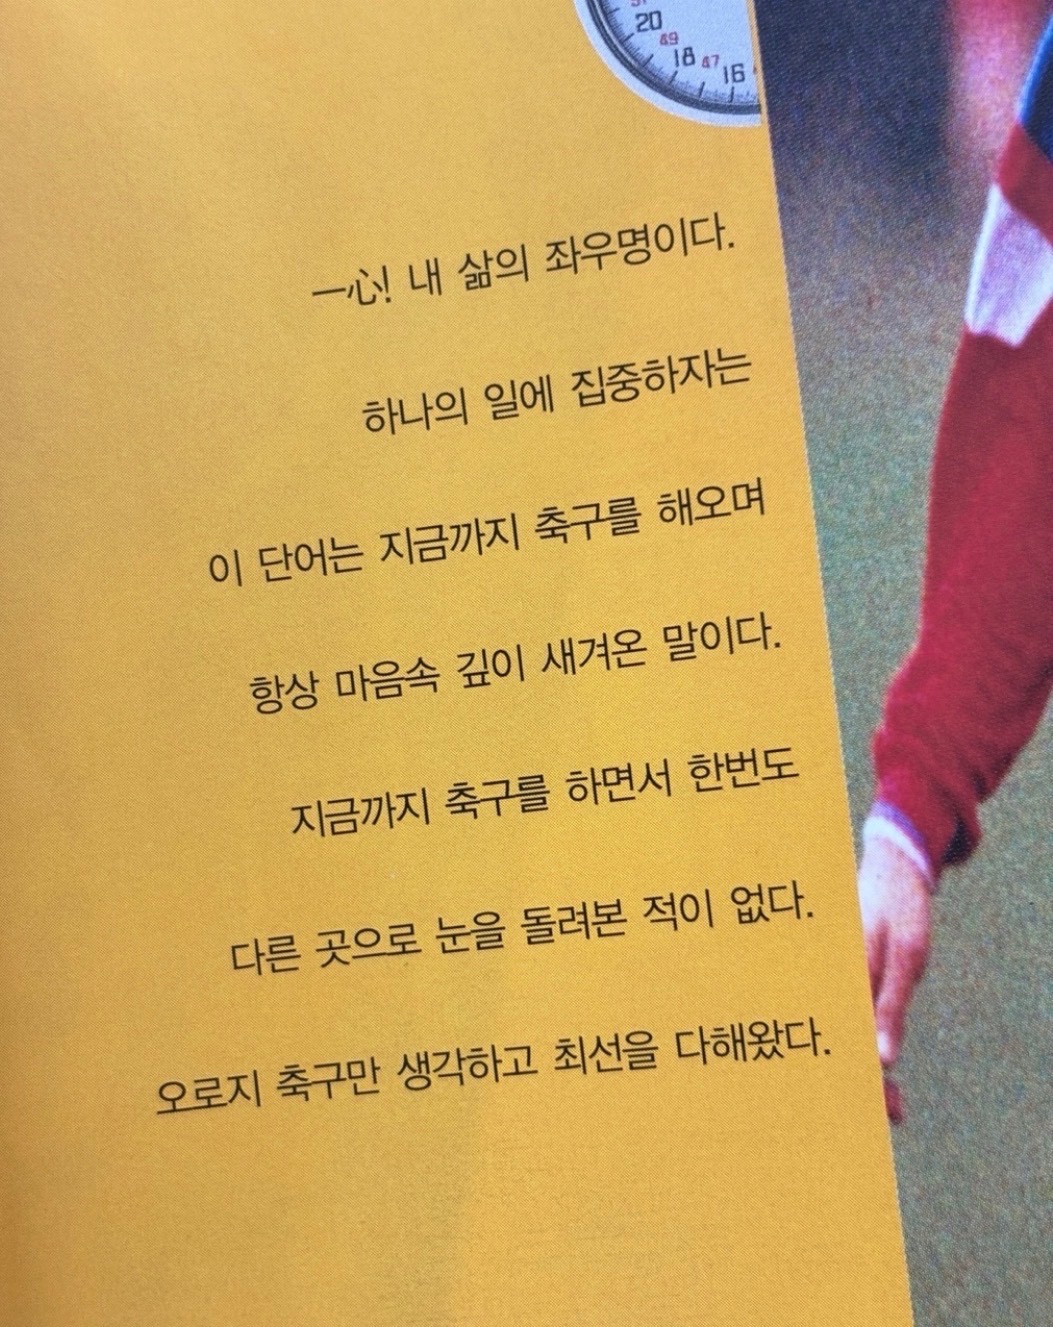 20
49
18
47
16
一心! 내 삶의 좌우명이다.
하나의 일에 집중하자는
이 단어는 지금까지 축구를 해오며
항상 마음속 깊이 새겨온 말이다.
지금까지 축구를 하면서 한번도
다른 곳으로 눈을 돌려본 적이 없다.
오로지 축구만 생각하고 최선을 다해왔다.